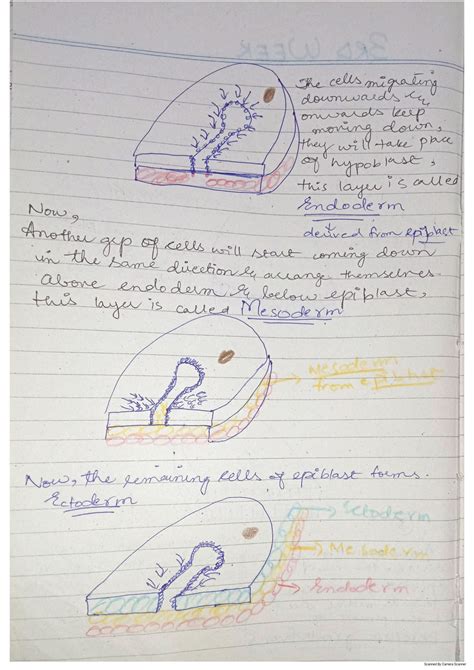 3RD WEEK
The cells migrating
downwards &
onwards keep
moving down,
they will take place
of hypoblast,
this layer is called
Endoderm
derived from epiblast
Now,
Another grp of cells will start coming down
in the same direction & arrange themselves
above endoderm & below epiblast,
this layer is called Mesoderm
Mesoderm
from epiblast
Now, the remaining cells of epiblast forms.
Ectoderm
Ectoderm
Mesoderm
Endoderm
Scanned By Camera Scanner